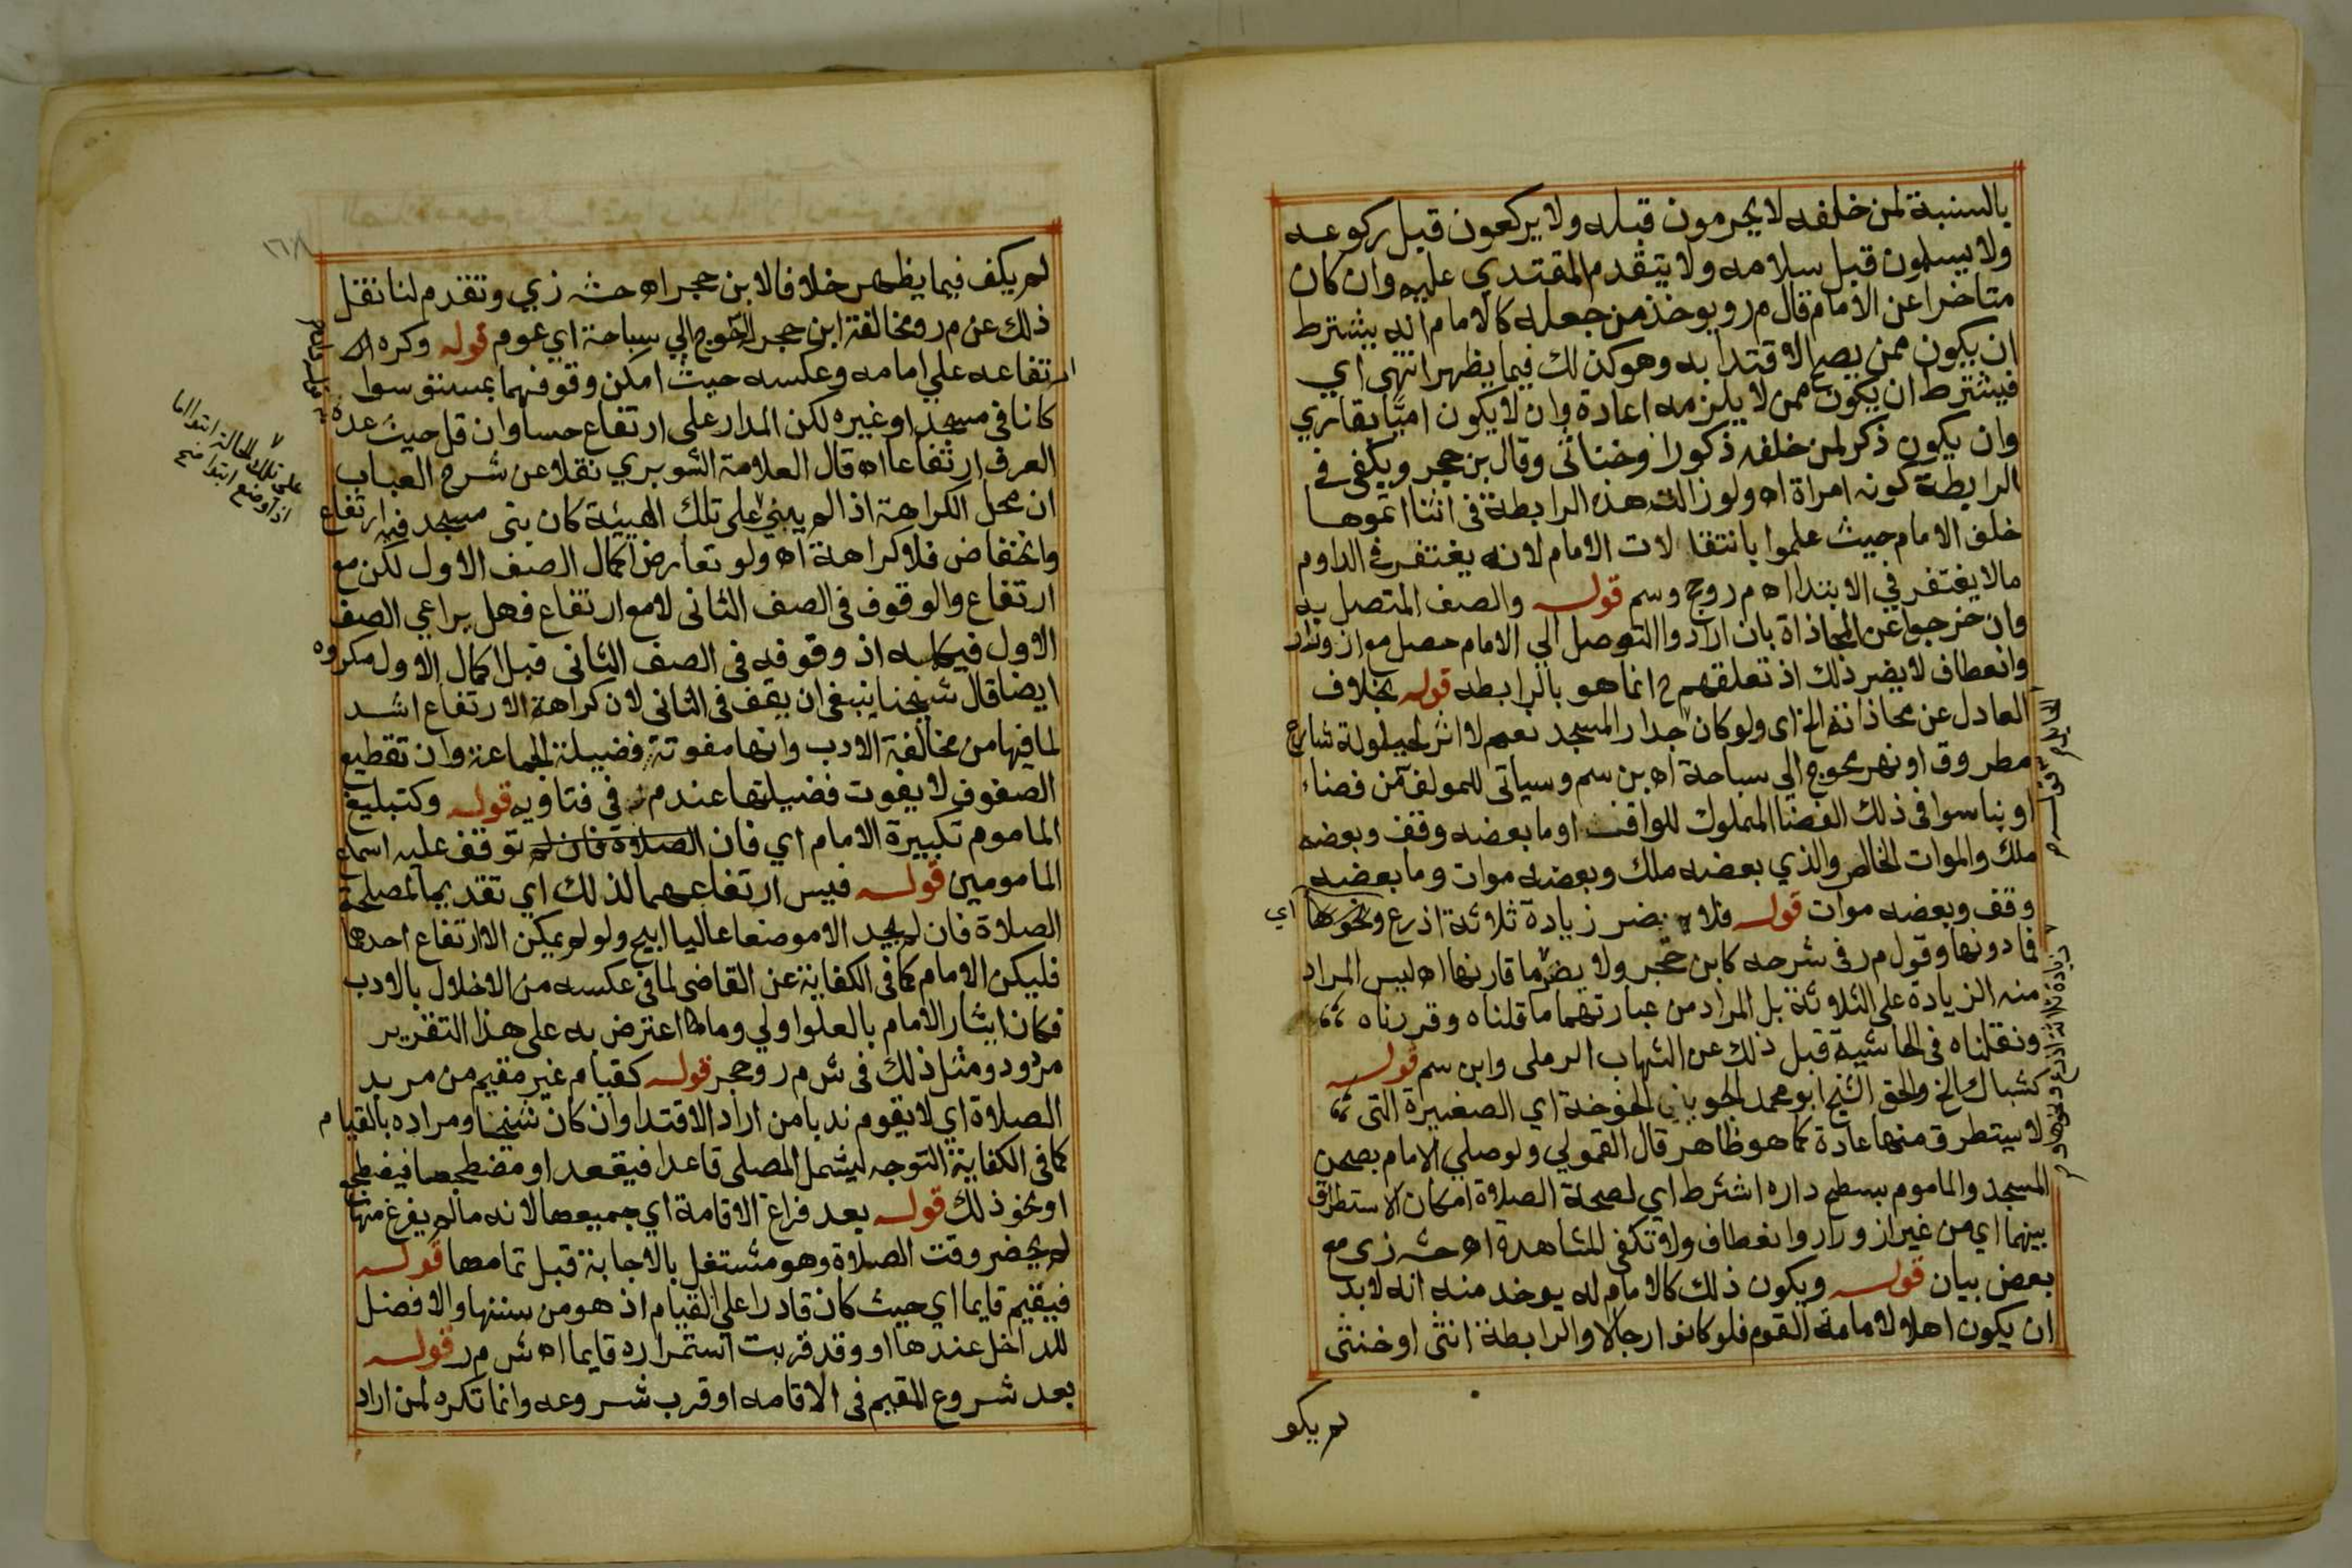 بالسنبة لمن خلفه لا يحرمون قبله ولا يركعون قبل ركوعه
ولا يسلمون قبل سلامه ولا يتقدم المقتدي عليه وان كان
متاخرا عن الامام قال م ر ويوخذ من جعله كالامام انه يشترط
ان يكون ممن يصح الاقتدا به وهو كذلك فيما يظهر انتهى اي
فيشترط ان يكون ممن لا يلزمه اعادة وان لا يكون اميا بقاري
وان يكون ذكر لمن خلفه ذكورا وخناثى وقال بن حجر ويكفى في
الرابطة كونه امراة اه ولو زالت هذه الرابطة فى اثنا اتموها
خلف الامام حيث علموا بانتقا لات الامام لانه يغتفر في الداوم
مالا يغتفر في الابتدا اه م ر وح وسم قوله والصف المتصل به
وان خرجوا عن المحاذاة بان ارادوا التوصل الي الامام حصل مع ازورار
وانعطاف لا يضر ذلك اذ تعلقهم ح انما هو بالرابطه قوله بخلاف
العادل عن محاذاته الخ اى ولو كان جدار المسجد نعم لا اثر لحيلولة شارع
مطروق او نهر محوج الي سباحة اه بن سم وسياتى للمولف من فضاء
او بنا سوا فى ذلك الفضا المملوك للواقف او ما بعضه وقف وبعضه
ملك والموات الخالص والذي بعضه ملك وبعضه موات وما بعضه
وقف وبعضه موات قوله فلا يضر زيادة ثلاثة اذرع ونحوها اي
فما دونها وقول م ر فى شرحه كابن حجر ولا يضر ما قاربها اه ليس المراد
منه الزيادة على الثلاثة بل المراد من عبارتهما ما قلناه وقررناه
ونقلناه فى الحاشية قبل ذلك عن الشهاب الرملى وابن سم قوله
كشباك الخ والحق الشيخ ابو محمد الجويني الخوخة اي الصغيرة التى
لا يستطرق منها عادة كما هو ظاهر قال القمولي ولو صلي الامام بصحن
المسجد والماموم بسطح داره اشترط اي لصحة الصلاة امكان الاستطراق
بينهما اي من غير ازورار وانعطاف ولا تكفى المشاهدة اه حشـ زى مع
بعض بيان قوله ويكون ذلك كالامام له يوخد منه انه لابد
ان يكون اهلا لامامة القوم فلو كانوا رجالا والرابطة انثى او خنثى
لم يكو
لم يكف فيما يظهر خلافا لابن حجر اه حشـ زي وتقدم لنا نقل
ذلك عن م ر ومخالفة ابن حجر المحوج الي سباحة اي عوم قوله وكره
ارتفاعه علي امامه وعكسه حيث امكن وقوفهما بمستو سوا
كانا فى مسجد او غيره لكن المدار على ارتفاع حسا وان قل حيث عده
العرف ارتفاعا اه قال العلامة الشوبري نقلا عن شرح العباب
ان محل الكراهة اذا لم يبني على تلك الهيئة كان بنى مسجد فيه ارتفاع
وانخفاض فلا كراهة اه ولو تعارض اكمال الصف الاول لكن مع
ارتفاع والوقوف فى الصف الثانى لا مع ارتفاع فهل يراعي الصف
الاول فيكمله اذ وقوفه فى الصف الثانى قبل اكمال الاول مكروه
ايضا قال شيخنا ينبغى ان يقف فى الثانى لان كراهة الارتفاع اشد
لما فيها من مخالفة الادب وانها مفوتة فضيلة الجماعة وان تقطيع
الصفوف لا يفوت فضيلتها عند م ر فى فتاويه قوله وكتبليغ
الماموم تكبيرة الامام اي فان الصلاة فان له توقف عليه اسماع
المامومين قوله فيسن ارتفاعهما لذلك اي تقديما لمصلحة
الصلاة فان لم يجد الا موضعا عاليا ابيح ولو لم يمكن الا ارتفاع احدها
فليكن الامام كما فى الكفاية عن القاضى لما فى عكسه من الاخلال بالادب
فكان ايثار الامام بالعلو اولي وما اعترض به على هذا التقرير
مردود ومثل ذلك فى ش م ر وحجر قوله كقيام غير مقيم من مريد
الصلاة اي لا يقوم ندبا من اراد الاقتدا وان كان شيخا ومراده بالقيام
كما فى الكفاية التوجه ليشمل المصلى قاعدا فيقعد او مضطجعا فيضطجع
او نحو ذلك قوله بعد فراغ الاقامة اي جميعها لانه مالم يفرغ منها
لم يحضر وقت الصلاة وهو مشتغل بالاجابة قبل تمامها قوله
فيقيم قايما اي حيث كان قادرا علي القيام اذ هو من سننها والافضل
للداخل عندها او وقد قربت استمراره قايما اه ش م ر قوله
بعد شروع المقيم فى الاقامه او قرب شروعه وانما تكره لمن اراد
على تلك الحالة ابتدا اما
اذا وضع ابتدا صح